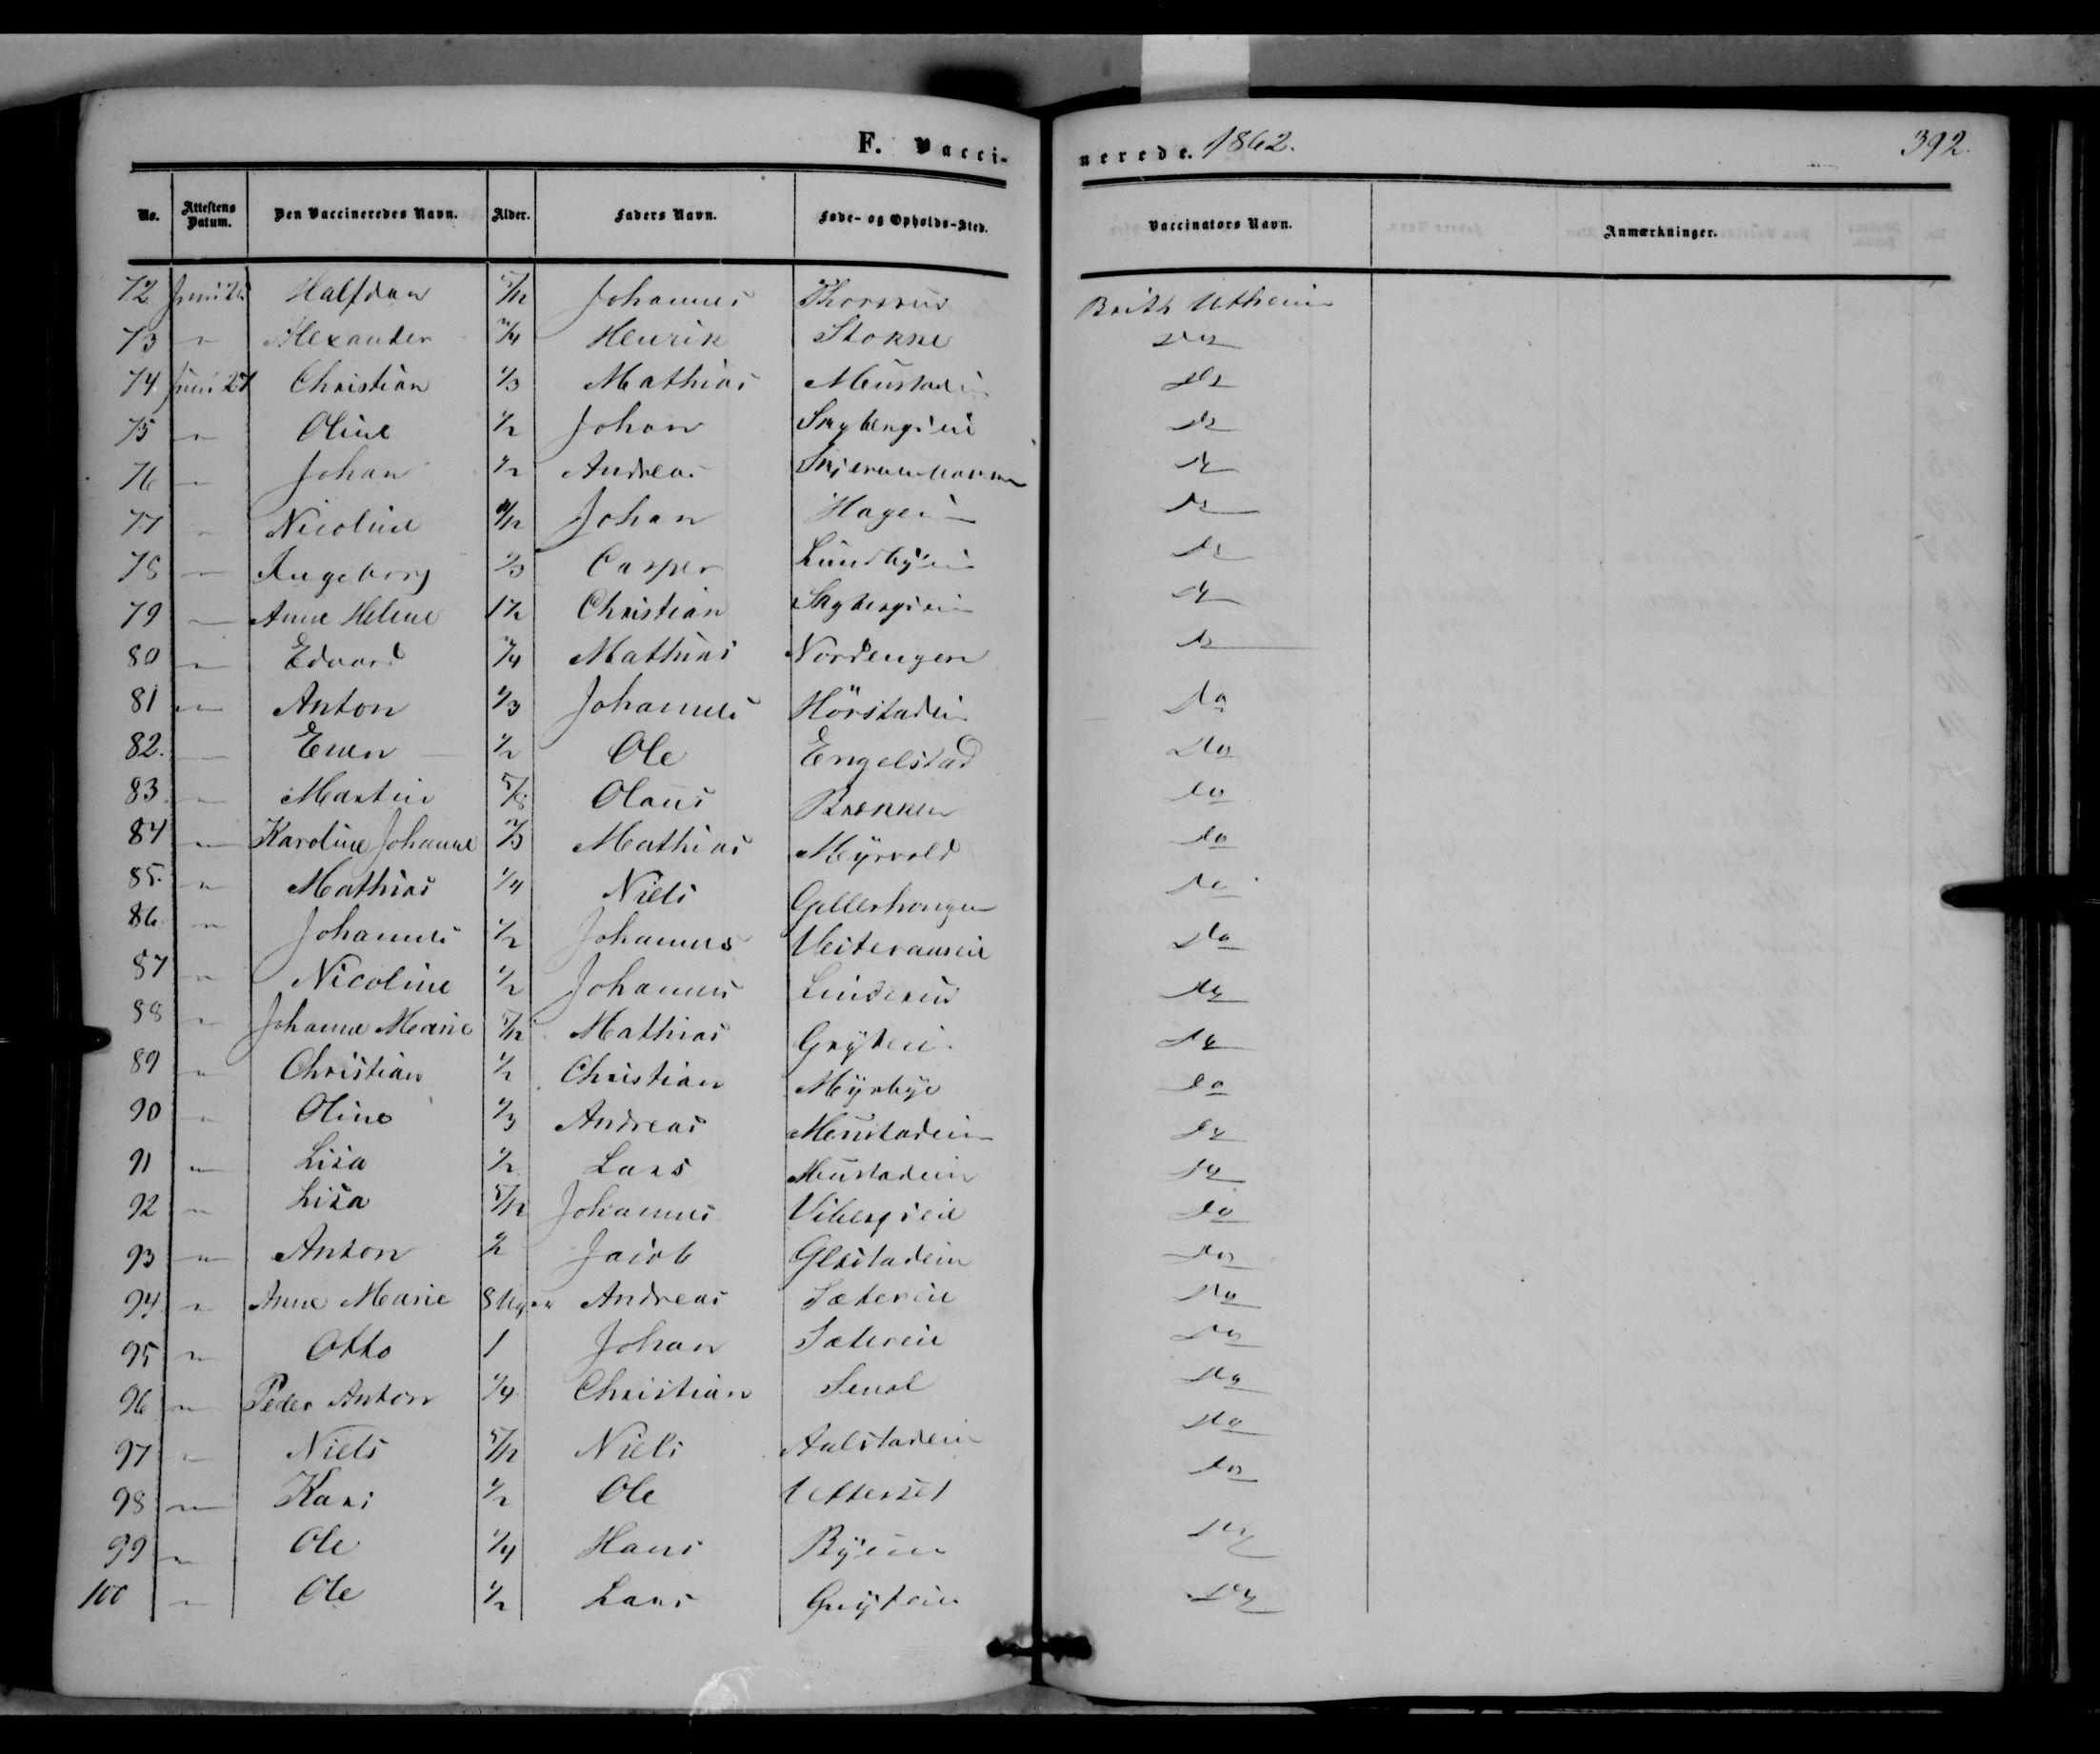 F. Vacci-
nerede. 1862.
392.
No. Attestens Datum. Den Vaccineredes Navn. Alder. Faders Navn. Føde- og Opholds-Sted. Vaccinators Navn. Anmærkninger.
72 Halfdan 5/12 Johannes Brith Utheim
73 " Alexander 3/4 Henrik Stokke Do
74 Juni 27 Christian 1/3 Mathias Do
75 " Oline 1/2 Johan Skybergseie Do
76 " Johan 1/2 Andreas Do
77 " Nicoline Johan Do
78 " Ingeborg Casper Do
79 " Anne Helene 1 1/2 Christian Skybergseie Do
80 " Edvard 3/4 Mathias Nordengen Do
81 " Anton 1/3 Johannes Hörstadeie Do
82. " Even 1/2 Ole Engelstad Do
83 " Martin 5/8 Olaus Do
84 " Karoline Johanne 2/3 Mathias Myrvold Do
85. " Mathias 1/4 Niels Do
86 " Johannes 1/2 Johannes Do
87 " Nicoline 1/2 Johannes Linderud Do
88 " Johanne Marie 5/12 Mathias Gryteie Do
89 " Christian 1/2 Christian Myrbye Do
90 " Oline 1/3 Andreas Mustadeie Do
91 " Lisa 1/2 Lars Mustadeie Do
92 " Lisa 5/12 Johannes Vibergseie Do
93 " Anton 1/2 Jacob Glestadeie Do
94 " Anne Marie 8 Uger Andreas Sætereie Do
95 " Otto 1 Johan Sætereie Do
96 " Peder Anton 1/4 Christian Do
97 " Niels 5/12 Niels Aalstadeie Do
98 " Kari 1/2 Ole Do
99 " Ole 1/4 Hans Do
100 " Ole 1/2 Lars Gryteie Do